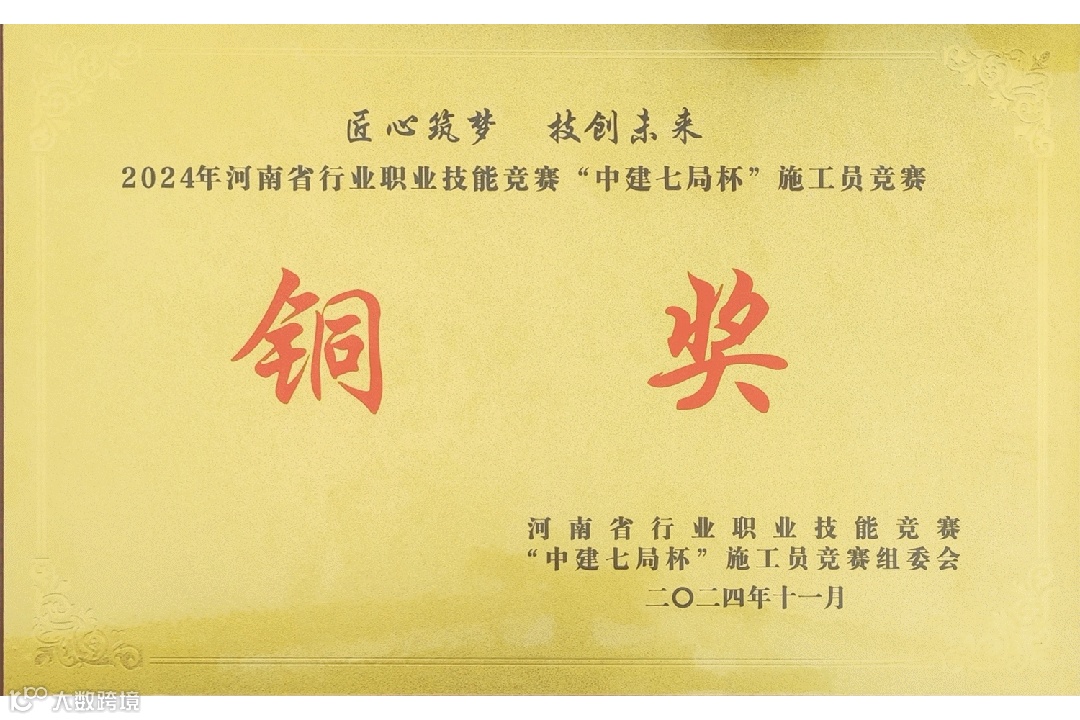 匠心筑梦 技创未来
2024年河南省行业职业技能竞赛“中建七局杯”施工员竞赛
铜奖
河南省行业职业技能竞赛
“中建七局杯”施工员竞赛组委会
二〇二四年十一月
大数跨境